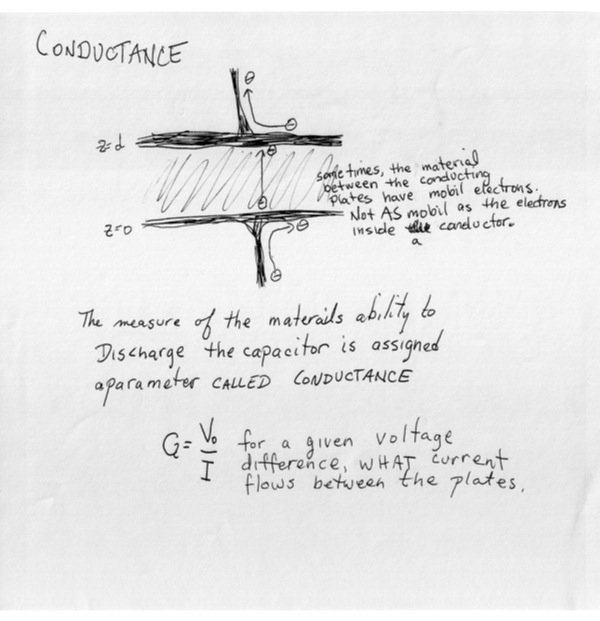 CONDUCTANCE
⊖
⊖
z=d
⊖
sometimes, the material
between the conducting
plates have mobil electrons.
Not AS mobil as the electrons
inside a conductor.
⊖
z=0
⊖
⊖
The measure of the materails ability to
Discharge the capacitor is assigned
aparameter CALLED CONDUCTANCE
G = V₀/I for a given voltage
difference, WHAT current
flows between the plates.